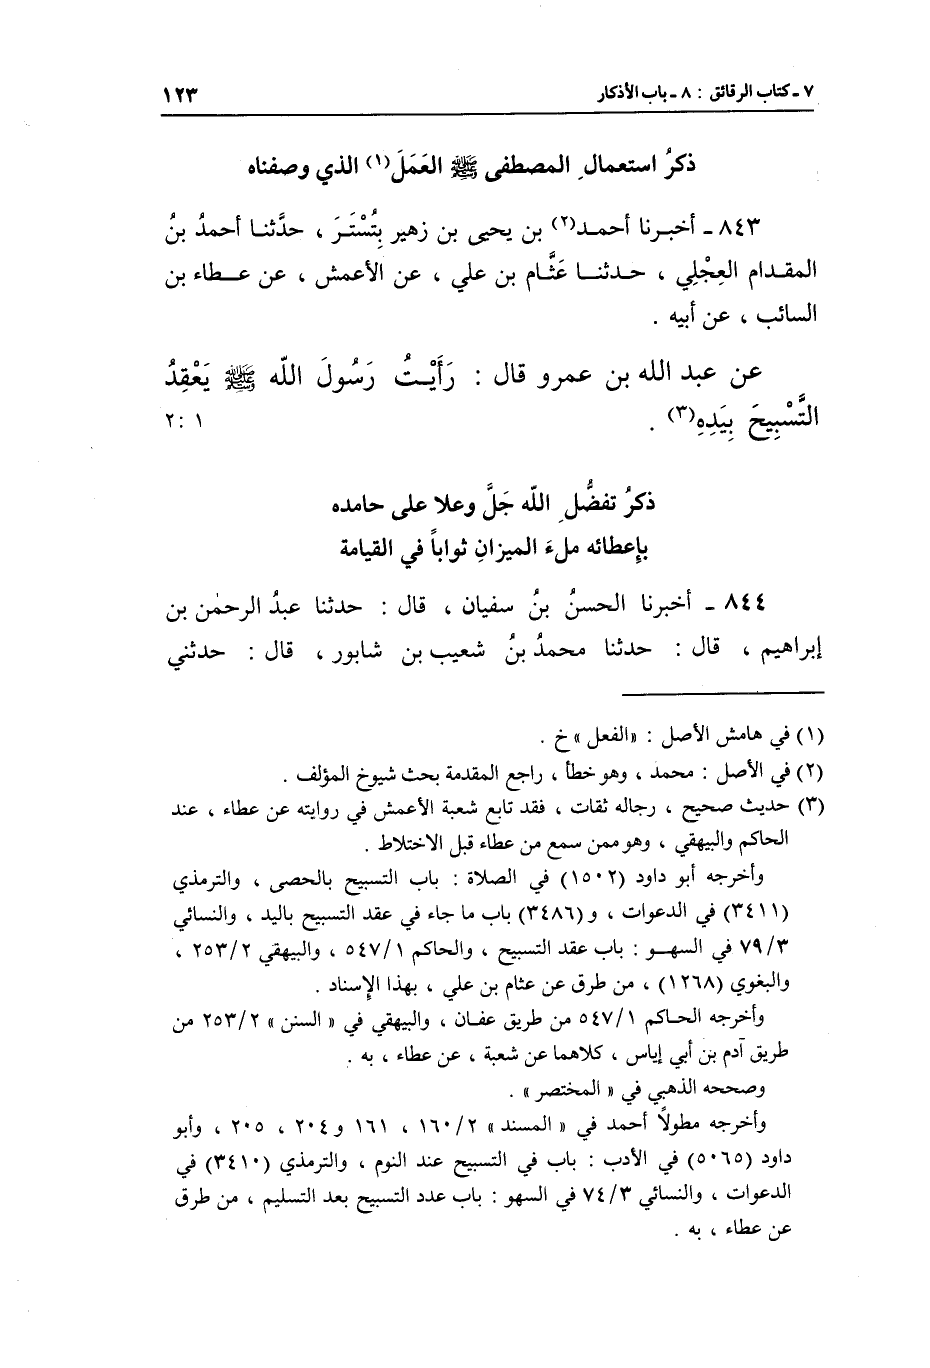 ٧ - كتاب الرقائق : ٨ - باب الأذكار ١٢٣
ذكرُ استعمالِ المصطفى ﷺ العَمَلَ(١) الذي وصفناه
٨٤٣ - أخبرنا أحمد(٢) بن يحيى بن زهير بِتُسْتَرَ ، حدَّثنا أحمدُ بنُ
المقدام العِجْلِي ، حدثنا عَثَّام بن علي ، عن الأعمش ، عن عطاء بن
السائب ، عن أبيه .
عن عبد الله بن عمرو قال : رَأَيْتُ رَسُولَ اللّه ﷺ يَعْقِدُ
التَّسْبِيحَ بِيَدِهِ(٣) . ١ :٢
ذكرُ تفضُّلِ اللّه جَلَّ وعلا على حامده
بإعطائه ملءَ الميزانِ ثواباً في القيامة
٨٤٤ - أخبرنا الحسنُ بنُ سفيان ، قال : حدثنا عبدُ الرحمٰن بن
إبراهيم ، قال : حدثنا محمدُ بنُ شعيب بن شابور ، قال : حدثني
(١) في هامش الأصل : «الفعل» خ .
(٢) في الأصل : محمد ، وهو خطأ ، راجع المقدمة بحث شيوخ المؤلف .
(٣) حديث صحيح ، رجاله ثقات ، فقد تابع شعبة الأعمش في روايته عن عطاء ، عند
الحاكم والبيهقي ، وهو ممن سمع من عطاء قبل الاختلاط .
وأخرجه أبو داود (١٥٠٢) في الصلاة : باب التسبيح بالحصى ، والترمذي
(٣٤١١) في الدعوات ، و(٣٤٨٦) باب ما جاء في عقد التسبيح باليد ، والنسائي
٧٩/٣ في السهو : باب عقد التسبيح ، والحاكم ٥٤٧/١ ، والبيهقي ٢٥٣/٢ ،
والبغوي (١٢٦٨) ، من طرق عن عثام بن علي ، بهذا الإسناد .
وأخرجه الحاكم ٥٤٧/١ من طريق عفان ، والبيهقي في « السنن » ٢٥٣/٢ من
طريق آدم بن أبي إياس ، كلاهما عن شعبة ، عن عطاء ، به .
وصححه الذهبي في « المختصر » .
وأخرجه مطولاً أحمد في « المسند » ١٦٠/٢ ، ١٦١ و٢٠٤ ، ٢٠٥ ، وأبو
داود (٥٠٦٥) في الأدب : باب في التسبيح عند النوم ، والترمذي (٣٤١٠) في
الدعوات ، والنسائي ٧٤/٣ في السهو : باب عدد التسبيح بعد التسليم ، من طرق
عن عطاء ، به .